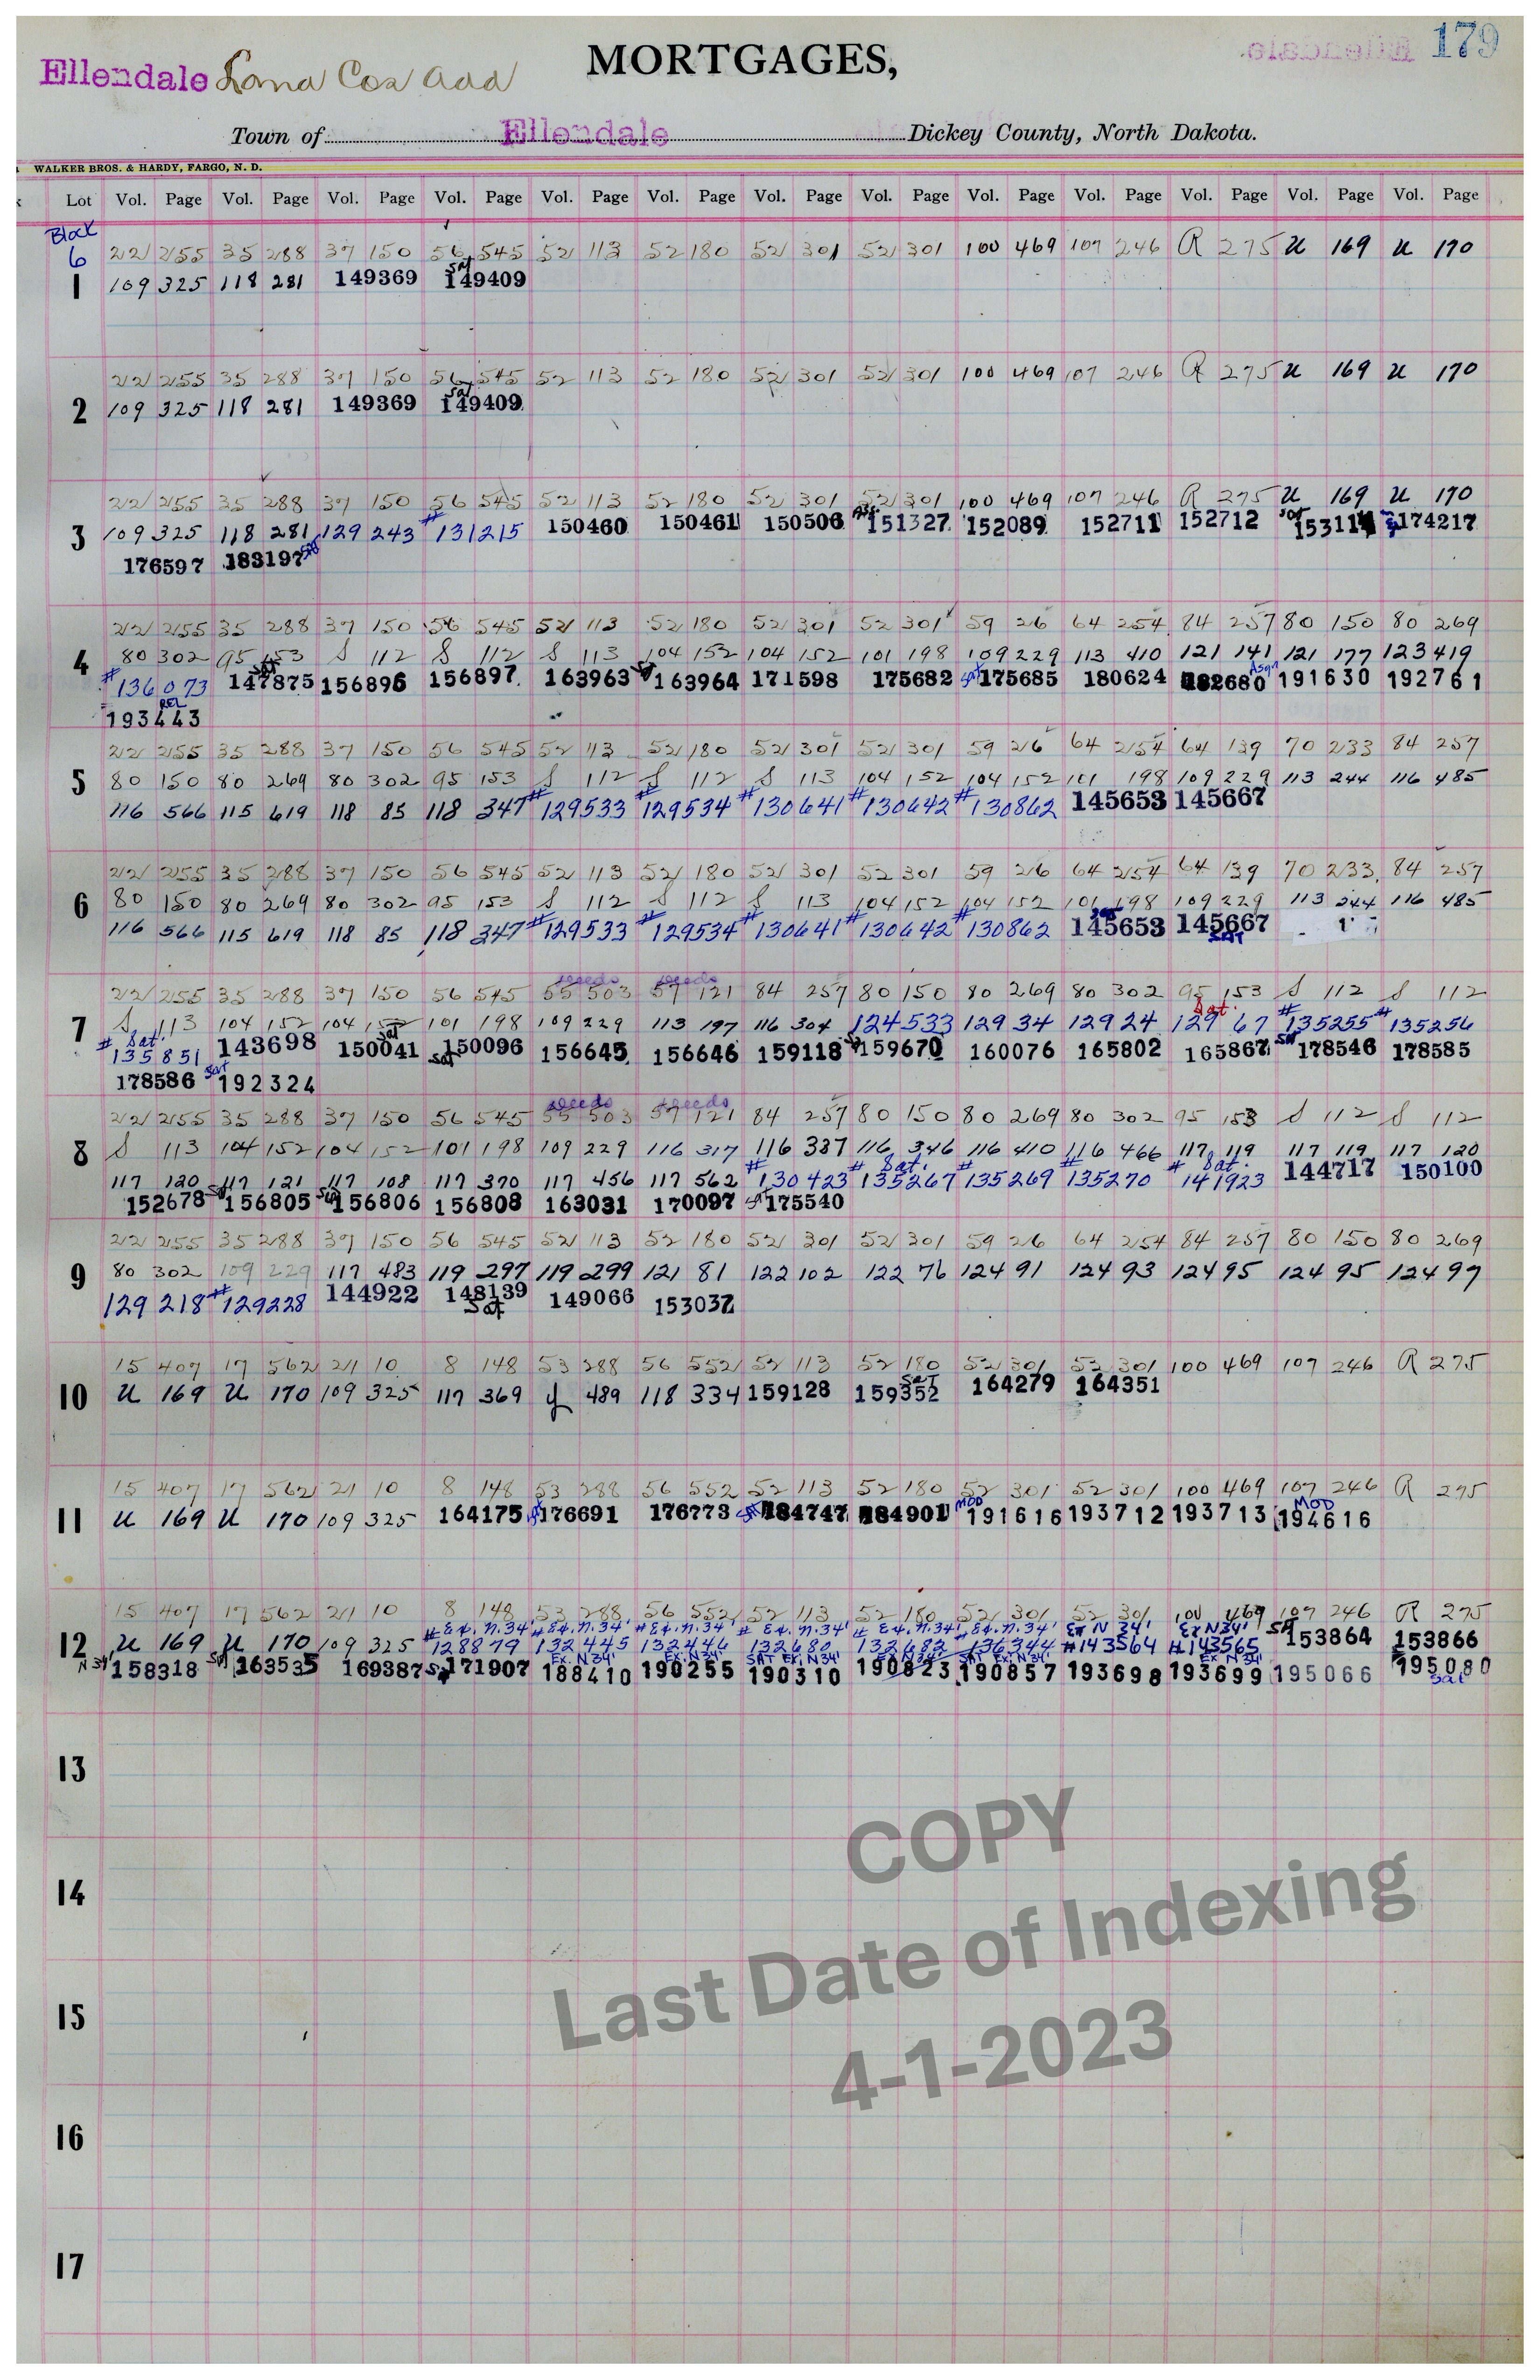 179
MORTGAGES,
Ellendale Land Cos Add
Town of Ellendale Dickey County, North Dakota.
WALKER BROS. & HARDY, FARGO, N. D.
Lot Vol. Page Vol. Page Vol. Page Vol. Page Vol. Page Vol. Page Vol. Page Vol. Page Vol. Page Vol. Page Vol. Page Vol. Page Vol. Page
Block
6 22 255 35 288 37 150 56 545 52 113 52 180 52 301 52 301 100 469 107 246 R 275 U 169 U 170
Sat
1 109 325 118 281 149369 149409
22 255 35 288 37 150 56 545 52 113 52 180 52 301 52 301 100 469 107 246 R 275 U 169 U 170
Sat
2 109 325 118 281 149369 149409
22 255 35 288 37 150 56 545 52 113 52 180 52 301 52 301 100 469 107 246 R 275 U 169 U 170
3 109 325 118 281 129 243 #131215 150460 150461 150506 151327 152089 152711 152712 Sat 153114 174217
176597 183197 Sat
22 255 35 288 37 150 56 545 52 113 52 180 52 301 52 301 59 26 64 254 84 257 80 150 80 269
4 80 302 95 153 S 112 S 112 S 113 104 152 104 152 101 198 109 229 113 410 121 141 121 177 123 419
#136073 Sat 147875 156896 156897 163963 Sat 163964 171598 175682 Sat 175685 180624 182680 Asgn 191630 192761
REL
193443
22 255 35 288 37 150 56 545 52 113 52 180 52 301 52 301 59 26 64 254 64 139 70 233 84 257
5 80 150 80 269 80 302 95 153 S 112 S 112 S 113 104 152 104 152 101 198 109 229 113 244 116 485
116 566 115 619 118 85 118 347 #129533 #129534 #130641 #130642 #130862 145653 145667
22 255 35 288 37 150 56 545 52 113 52 180 52 301 52 301 59 26 64 254 64 139 70 233 84 257
6 80 150 80 269 80 302 95 153 S 112 S 112 S 113 104 152 104 152 101 198 109 229 113 244 116 485
116 566 115 619 118 85 118 347 #129533 #129534 #130641 #130642 #130862 Sat 145653 145667
SAT
Deeds Deeds
22 255 35 288 37 150 56 545 55 503 57 121 84 257 80 150 80 269 80 302 95 153 S 112 S 112
7 S 113 104 152 104 152 101 198 109 229 113 197 116 304 124 533 129 34 129 24 Sat. 129 67 #135255 #135256
# Sat. 135851 143698 Sat 150041 Sat 150096 156645 156646 159118 Sat 159670 160076 165802 165867 Sat 178546 178585
178586 Sat 192324
Deeds Deeds
22 255 35 288 37 150 56 545 55 503 57 121 84 257 80 150 80 269 80 302 95 153 S 112 S 112
8 S 113 104 152 104 152 101 198 109 229 116 317 116 387 116 346 116 410 116 466 117 119 117 119 117 120
117 120 117 121 117 108 117 370 117 456 117 562 #130423 # Sat. 135267 #135269 #135270 # Sat. 141923 144717 150100
152678 Sat 156805 Sat 156806 156808 163031 170097 Sat 175540
22 255 35 288 37 150 56 545 52 113 52 180 52 301 52 301 59 26 64 254 84 257 80 150 80 269
9 80 302 109 229 117 483 119 297 119 299 121 81 122 102 122 76 124 91 124 93 124 95 124 95 124 97
129 218 #129228 144922 148139 149066 153037
Sat
15 407 17 562 21 10 8 148 53 288 56 552 52 113 52 180 52 301 52 301 100 469 107 246 R 275
10 U 169 U 170 109 325 117 369 y 489 118 334 159128 Sat 159352 164279 164351
15 407 17 562 21 10 8 148 53 288 56 552 52 113 52 180 52 301 52 301 100 469 107 246 R 275
11 U 169 U 170 109 325 164175 Sat 176691 176773 Sat 184747 184901 MOD 191616 193712 193713 MOD 194616
15 407 17 562 21 10 8 148 53 288 56 552 52 113 52 180 52 301 52 301 100 469 107 246 R 275
# Ex. N.34' # Ex. N.34' # Ex. N.34' # Ex. N.34' # Ex. N.34' # Ex. N.34' Ex N 34' Ex N34'
12 U 169 U 170 109 325 128879 132445 132446 132680 132682 136344 #143564 #143565 Sat 153864 153866
Ex. N34' Ex. N34' SAT Ex. N34' Ex N34' SAT Ex. N34' Ex N34'
N 34' 158318 Sat 163535 169387 Sat 171907 188410 190255 190310 190823 190857 193698 193699 195066 195080
Sat
13
14
15
16
17
COPY
Last Date of Indexing
4-1-2023